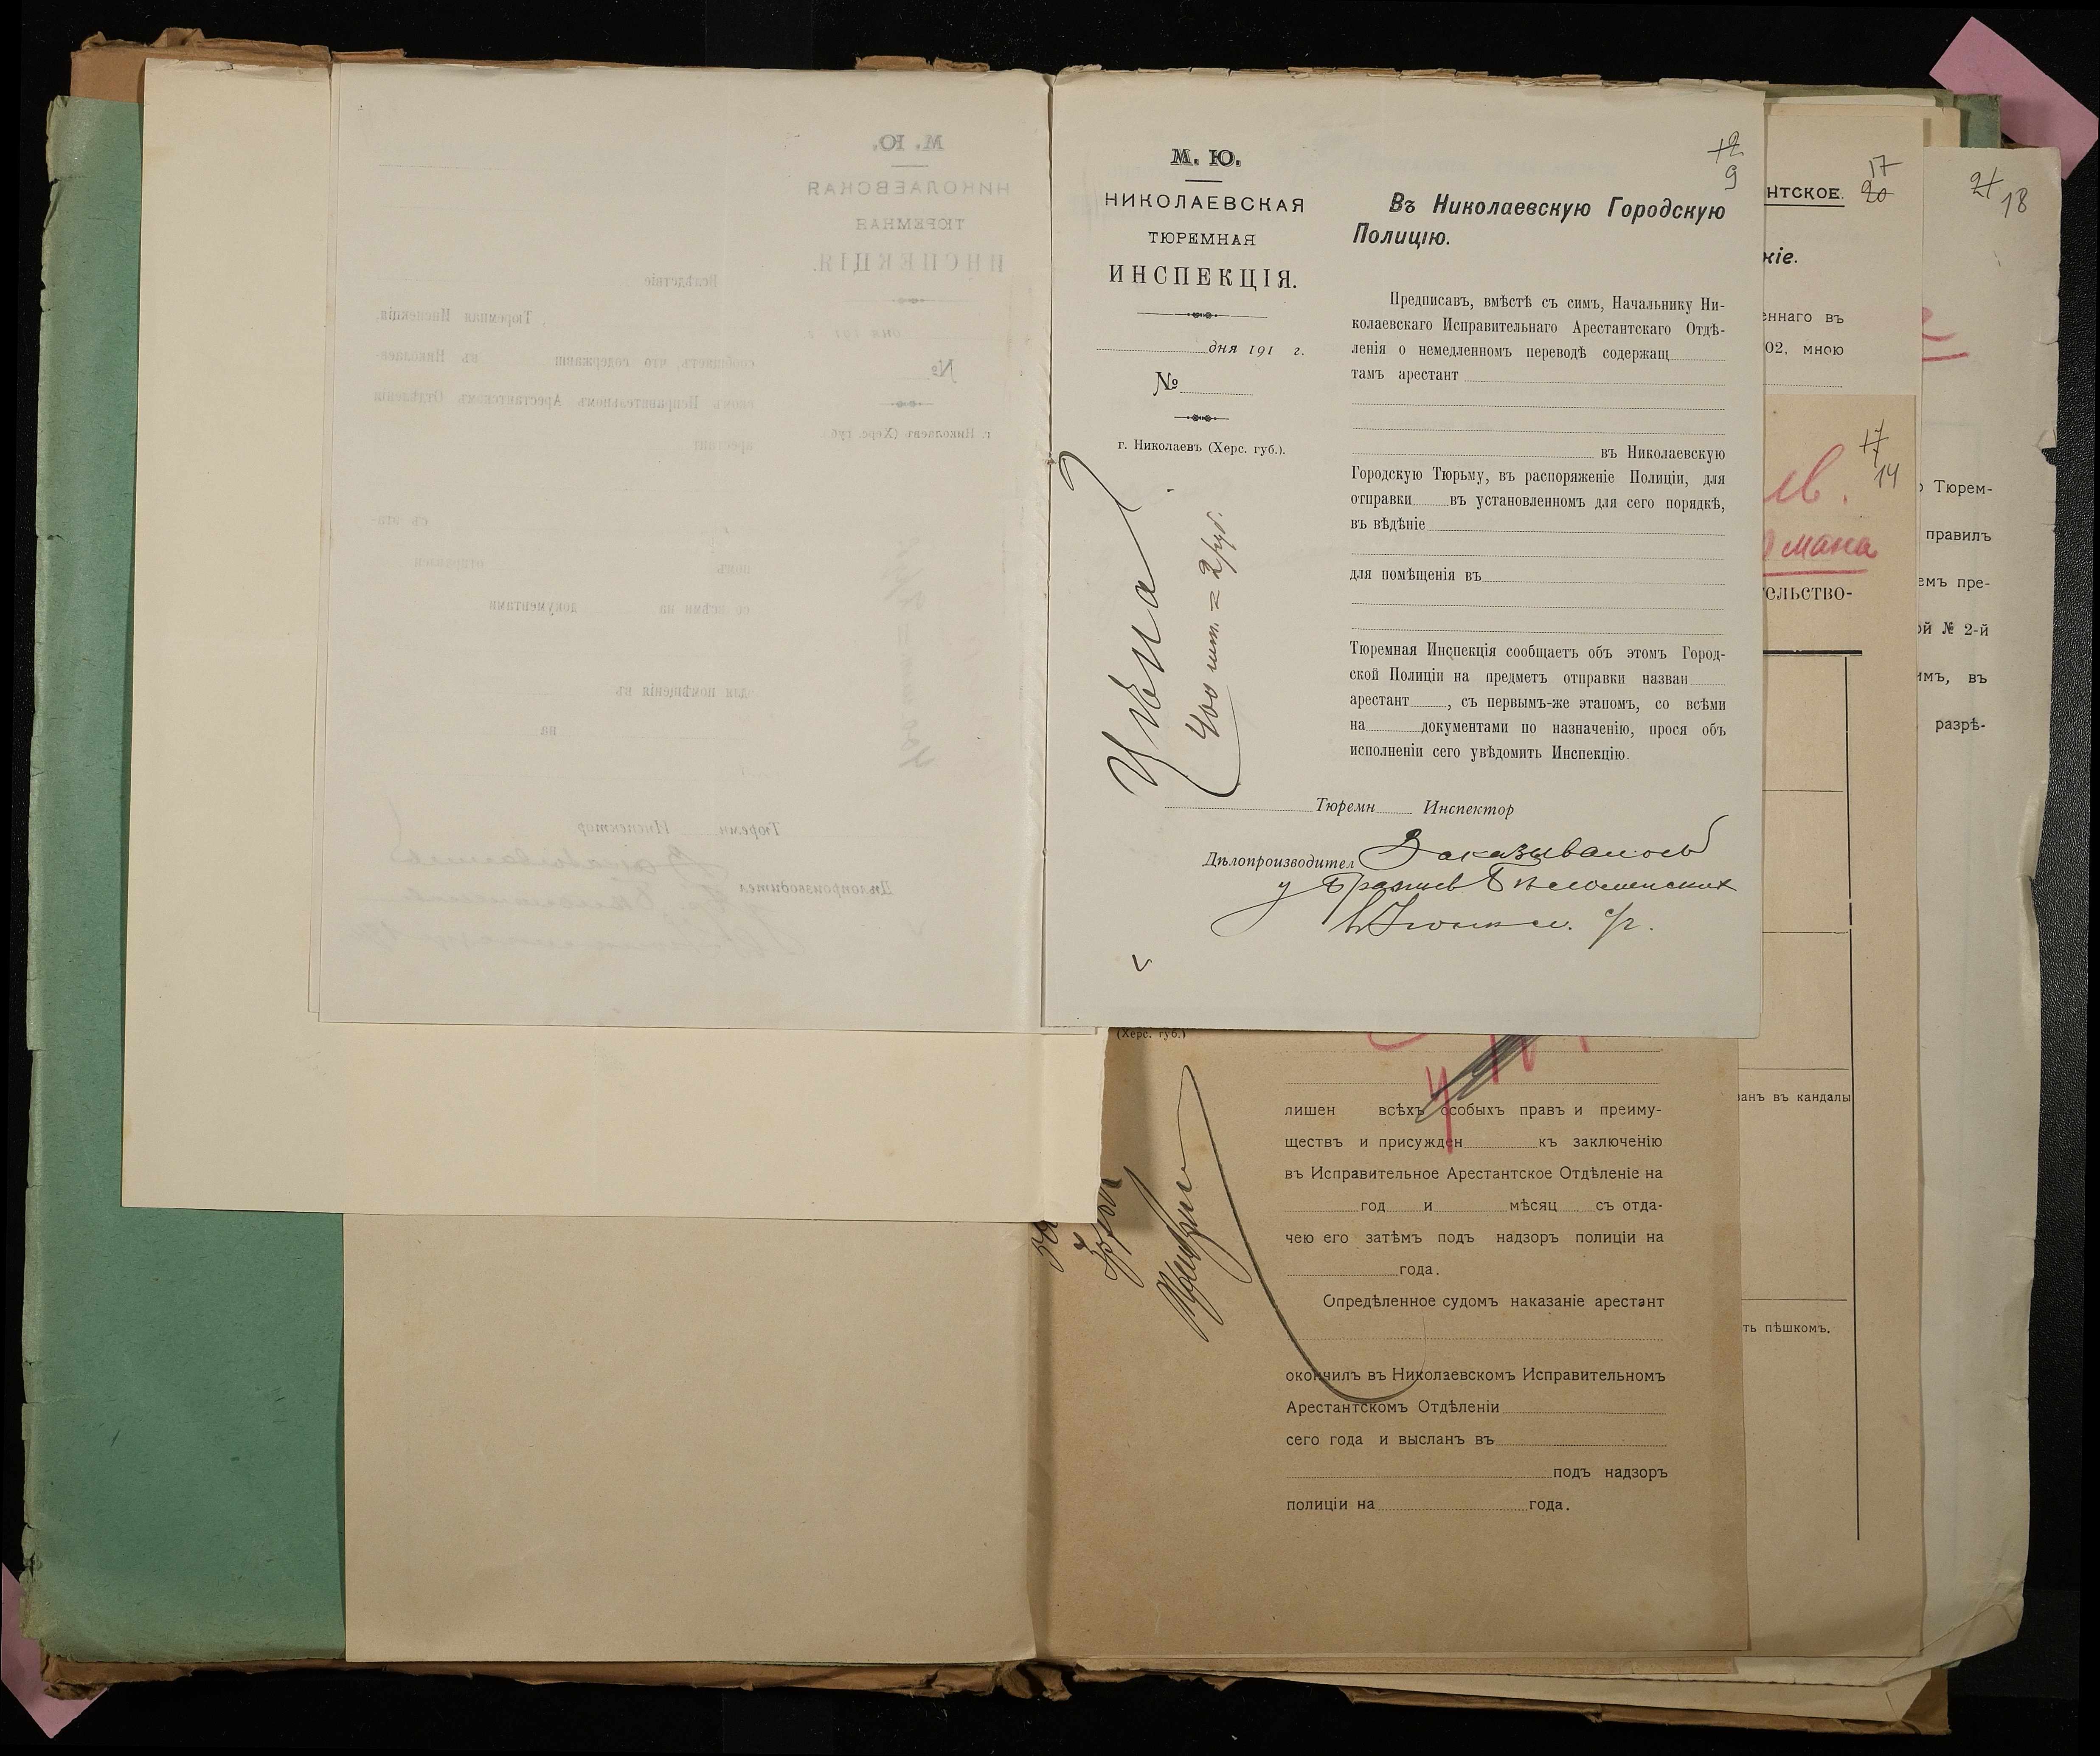 М. Ю.
НИКОЛАЕВСКАЯ
ТЮРЕМНАЯ
ИНСПЕКЦІЯ.
дня 191 г.
№
г. Николаевъ (Херс. губ.).
Цѣна
400 шт. = 2 руб.
12
9
Въ Николаевскую Городскую
Полицію.
Предписавъ, вмѣстѣ съ симъ, Начальнику Ни-
колаевскаго Исправительнаго Арестантскаго Отдѣ-
ленія о немедленномъ переводѣ содержащ
тамъ арестант
въ Николаевскую
Городскую Тюрьму, въ распоряженіе Полиціи, для
отправки въ установленномъ для сего порядкѣ,
въ вѣдѣніе
для помѣщенія въ
Тюремная Инспекція сообщаетъ объ этомъ Город-
ской Полиціи на предметъ отправки назван
арестант , съ первымъ-же этапомъ, со всѣми
на документами по назначенію, прося объ
исполненіи сего увѣдомить Инспекцію.
Тюремн Инспекторъ
Дѣлопроизводител
Заказывалось
у Братьевъ
(Херс. губ.)
лишен всѣхъ особыхъ правъ и преиму-
ществъ и присужден къ заключенію
въ Исправительное Арестантское Отдѣленіе на
год и мѣсяц съ отда-
чею его затѣмъ подъ надзоръ полиціи на
года.
Опредѣленное судомъ наказаніе арестант
окончилъ въ Николаевскомъ Исправительномъ
Арестантскомъ Отдѣленіи
сего года и высланъ въ
подъ надзоръ
полиціи на года.
НТСКОЕ.
17
20
кіе.
еннаго въ
02, мною
17
14
мана
ельство-
анъ въ кандалы
ть пѣшкомъ.
21
18
Тюрем-
правилъ
емъ пре-
ой № 2-й
имъ, въ
разрѣ-